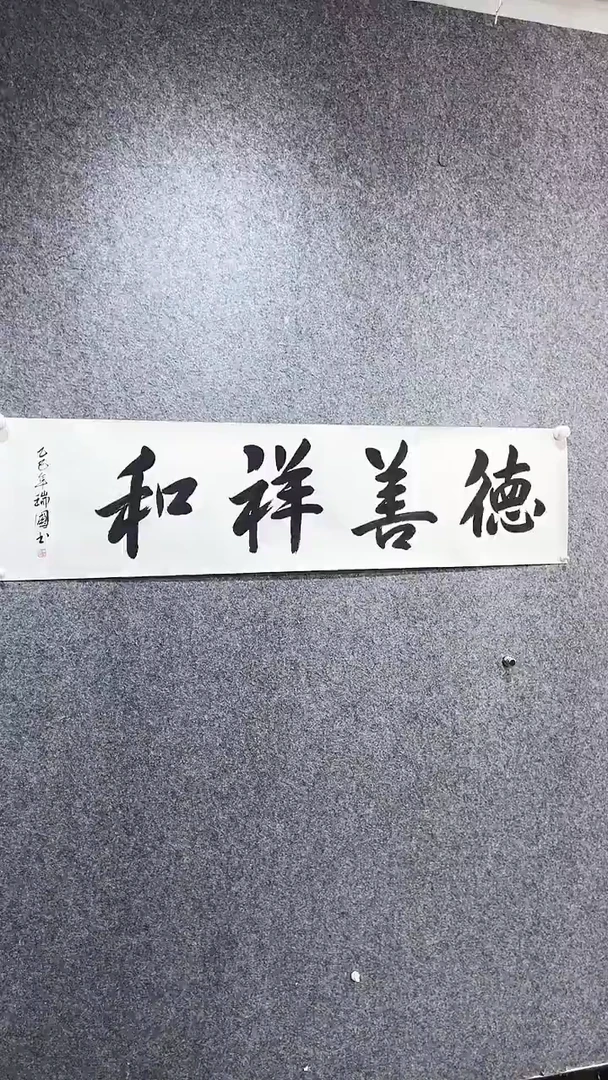 德善祥和
乙巳年瑞國书